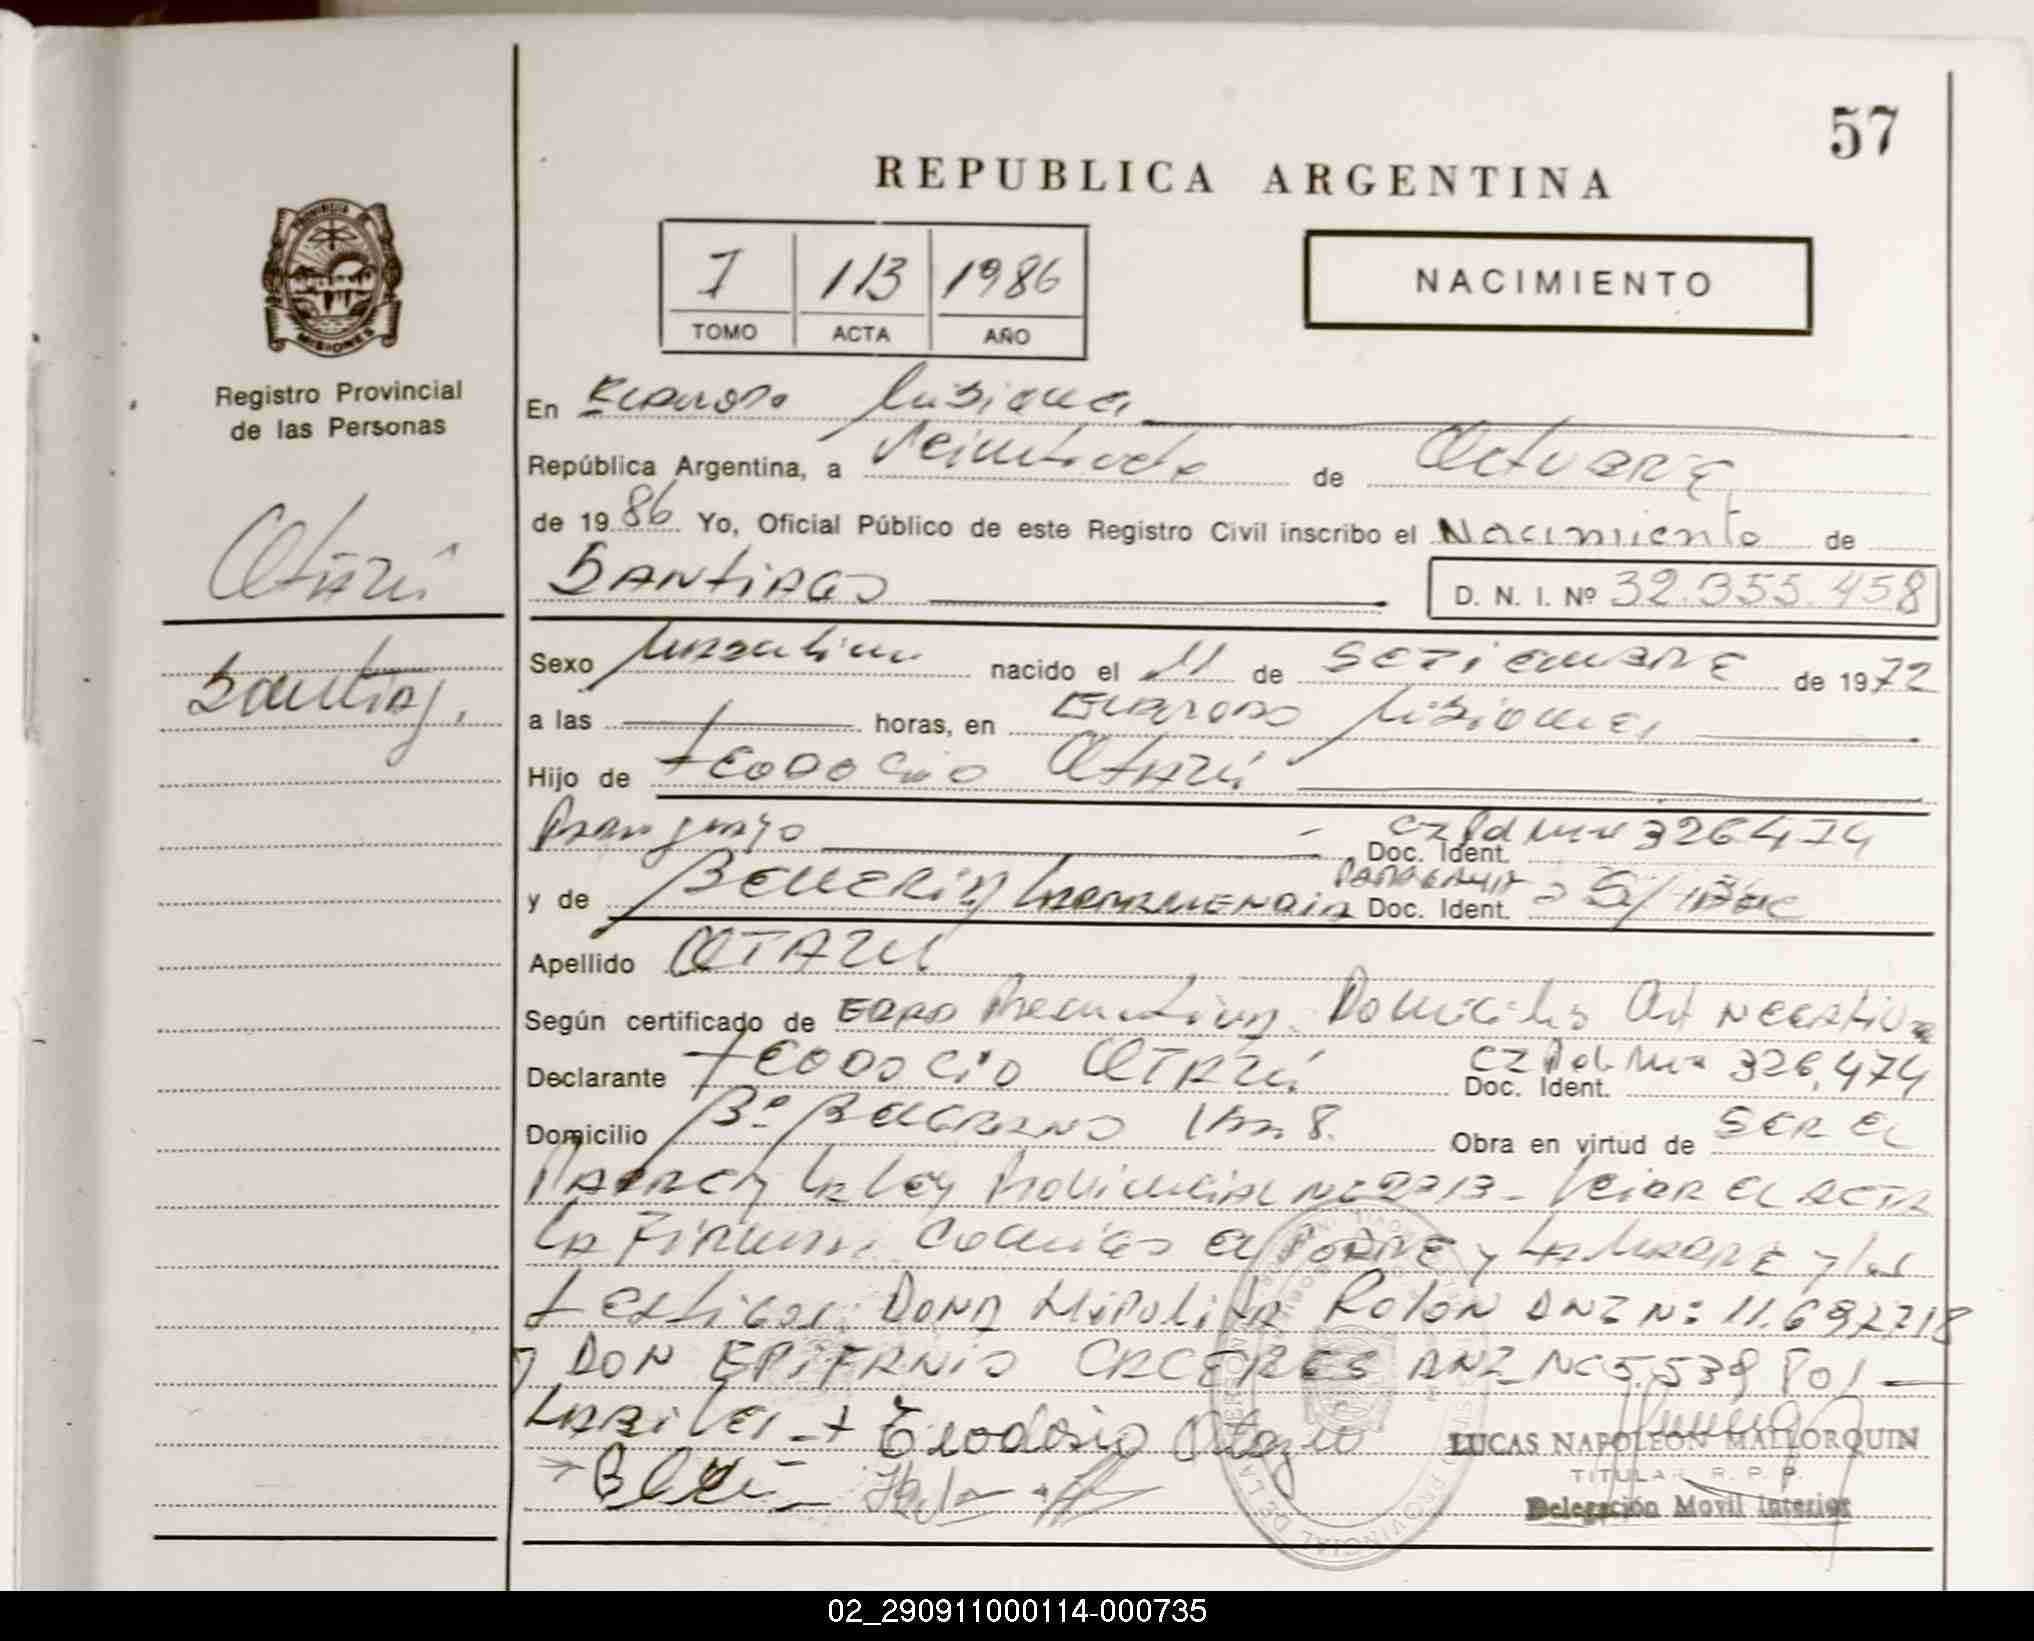 57
REPUBLICA ARGENTINA
I 113 1986
TOMO ACTA AÑO
NACIMIENTO
PROVINCIA DE
MISIONES
Registro Provincial
de las Personas
Otazú
Santiago
En Eldorado Misiones
República Argentina, a Veintiocho de Octubre
de 1986 Yo, Oficial Público de este Registro Civil inscribo el Nacimiento de
SANTIAGO D. N. I. Nº 32.355.458
Sexo Masculino nacido el 11 de SETIEMBRE de 1972
a las horas, en Eldorado Misiones
Hijo de TEODOCIO Otazú
Paraguayo Doc. Ident. CI Pol Mnes 326474
y de Doc. Ident. S/
Apellido OTAZU
Según certificado de EDAD Presuntiva Domicilio Art NEGATIVO
Declarante TEODOCIO OTAZÚ Doc. Ident. CI Pol. Mnes 326.474
Domicilio Bº BELGRANO Km 8. Obra en virtud de SER EL
PADRE y la Ley Provincial Nº 2713 - Leida EL ACTA
La Firman Conmigo el PADRE y LA MADRE y los
testigos Doña Hipolita Rolon DNI Nº 11.697718
y DON EPIFANIO CACERES DNI Nº 5.538 801
HABILES Teodosio Otazu
LUCAS NAPOLEON MALLORQUIN
TITULAR R. P. P.
Delegación Movil Interior
02_290911000114-000735